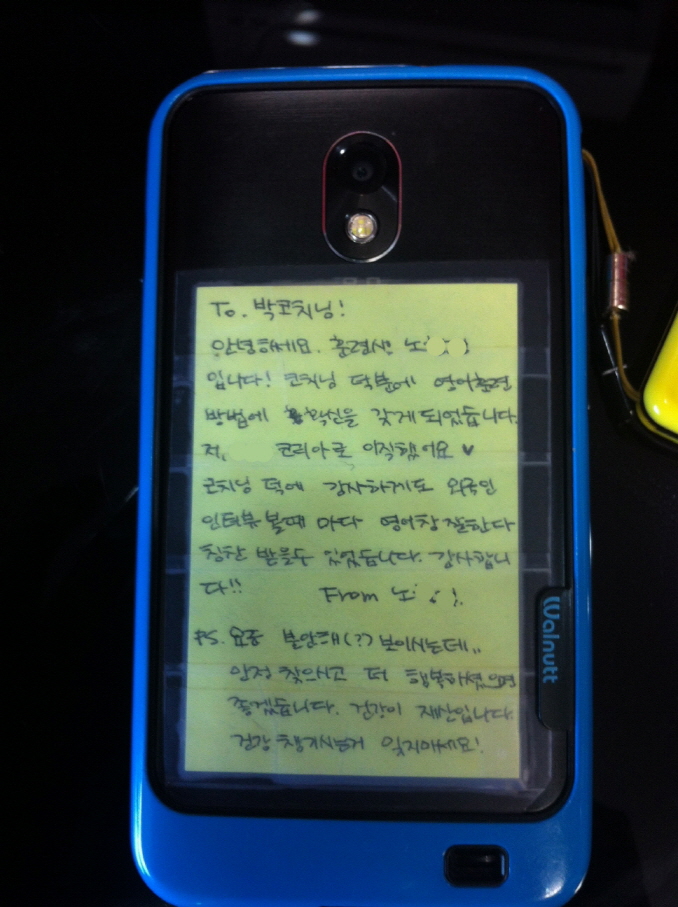 To. 박코치님!
안녕하세요. 훈련생 노
입니다! 코치님 덕분에 영어훈련
방법에 확신을 갖게 되었습니다.
저, 코리아로 이직했어요 ♥
코치님 덕에 감사하게도 외국인
인터뷰 볼때 마다 영어참잘한다
칭찬 받을수 있었습니다. 감사합니
다!! From 노
PS. 요즘 불안해(??) 보이시는데..
안정 찾으시고 더 행복하셨으면
좋겠습니다. 건강이 재산입니다.
건강 챙기시는거 잊지마세요!
Walnutt